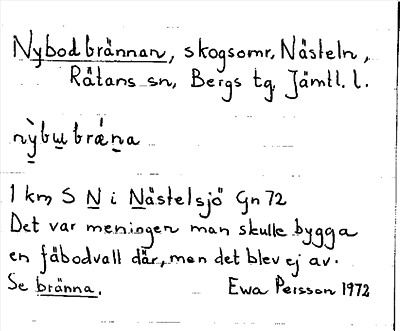 Nybodbrännan, skogsomr, Nästeln,
Rätans sn, Bergs tg, Jämtl. l.
nỳbu̲brǽn̲a
1 km S N i Nästelsjö Gn 72
Det var meningen man skulle bygga
en fäbodvall där, men det blev ej av.
Se bränna.
Ewa Persson 1972